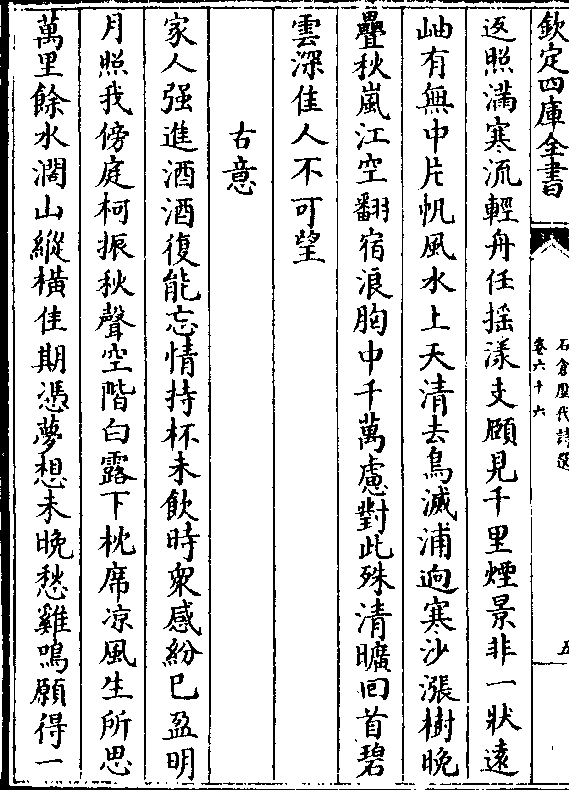 欽定四庫全書
石倉歷代詩選
卷六十六
五
返照滿寒流輕舟任揺漾支頤見千里煙景非一狀遠
岫有無中片帆風水上天清去鳥滅浦逈寒沙漲樹晚
疊秋嵐江空翻宿浪胸中千萬慮對此殊清曠回首碧
雲深佳人不可望
古意
家人强進酒酒復能忘情持杯未飲時衆感紛已盈明
月照我傍庭柯振秋聲空階白露下枕席凉風生所思
萬里餘水濶山縱橫佳期憑夢想未晚愁雞鳴願得一